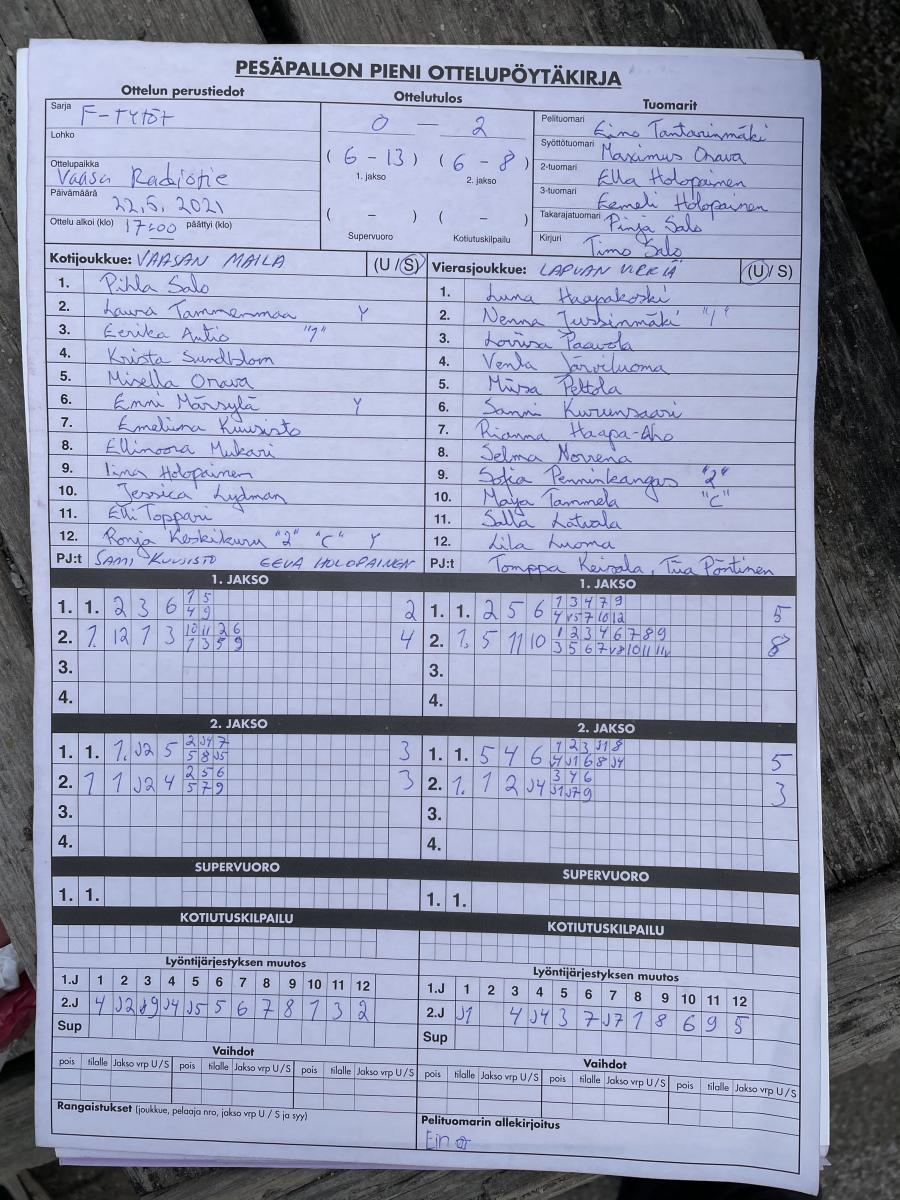 PESÄPALLON PIENI OTTELUPÖYTÄKIRJA
Ottelun perustiedot
Sarja F-Tytöt
Lohko
Ottelupaikka
Vaasa Radiotie
Päivämäärä
22.5. 2021
Ottelu alkoi (klo) 17:00 päättyi (klo)
Ottelutulos
0 — 2
( 6 - 13 ) ( 6 - 8 )
1. jakso 2. jakso
( - ) ( - )
Supervuoro Kotiutuskilpailu
Tuomarit
Pelituomari Eino Tantarinmäki
Syöttötuomari Maximus Orava
2-tuomari Ella Holopainen
3-tuomari Eemeli Holopainen
Takarajatuomari Pinja Salo
Kirjuri Timo Salo
Kotijoukkue: VAASAN MAILA (U / S)
1. Pihla Salo
2. Laura Tammenmaa Y
3. Eerika Autio "1"
4. Krista Sundblom
5. Misella Orava
6. Enni Märsylä Y
7. Emeliina Kuusisto
8. Ellinoora Mukari
9. Iina Holopainen
10. Jessica Lydman
11. Elli Toppari
12. Ronja Keskikuru "2" "C" Y
PJ:t SAMI KUUSISTO EEVA HOLOPAINEN
Vierasjoukkue: LAPUAN VIRKIÄ (U / S)
1. Luna Haapakoski
2. Nenna Jussinmäki "1"
3. Loviisa Paavola
4. Venla Järviluoma
5. Miisa Peltola
6. Sanni Kurunsaari
7. Rianna Haapa-Aho
8. Selma Norrena
9. Sofia Penninkangas "2"
10. Maija Tammela "C"
11. Salla Latvala
12. Lila Luoma
PJ:t Tomppa Keisala, Tiia Pöntinen
1. JAKSO
1. 1. 2 3 6 1 5 2
4 9
2. 1. 12 1 3 10 11 2 6 4
1 3 5 9
3.
4.
1. JAKSO
1. 1. 2 5 6 1 3 4 7 9 5
4 v5 7 10 12
2. 1. 5 11 10 1 2 3 4 6 7 8 9 8
3 5 6 7 v8 10 11 11v
3.
4.
2. JAKSO
1. 1. 1. J2 5 2 J4 7 3
5 8 J5
2. 1 1 J2 4 2 5 6 3
5 7 9
3.
4.
2. JAKSO
1. 1. 5 4 6 1 2 3 J1 8 5
4 J1 6 8 J4
2. 1. 1 2 J4 3 4 6 3
J1 J7 9
3.
4.
SUPERVUORO
1. 1.
SUPERVUORO
1. 1.
KOTIUTUSKILPAILU
KOTIUTUSKILPAILU
Lyöntijärjestyksen muutos
1.J 1 2 3 4 5 6 7 8 9 10 11 12
2.J 4 J2 J9 J4 J5 5 6 7 8 1 3 2
Sup
Lyöntijärjestyksen muutos
1.J 1 2 3 4 5 6 7 8 9 10 11 12
2.J J1 4 J4 3 7 J7 1 8 6 9 5
Sup
Vaihdot
pois tilalle Jakso vrp U / S pois tilalle Jakso vrp U / S pois tilalle Jakso vrp U / S
Vaihdot
pois tilalle Jakso vrp U / S pois tilalle Jakso vrp U / S pois tilalle Jakso vrp U / S
Rangaistukset (joukkue, pelaaja nro, jakso vrp U / S ja syy)
Pelituomarin allekirjoitus
Eino